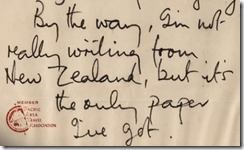 By the way, I'm not
really writing from
New Zealand, but it's
the only paper
I've got.
MEMBER
PACIFIC
AREA
TRAVEL
ASSOCIATION